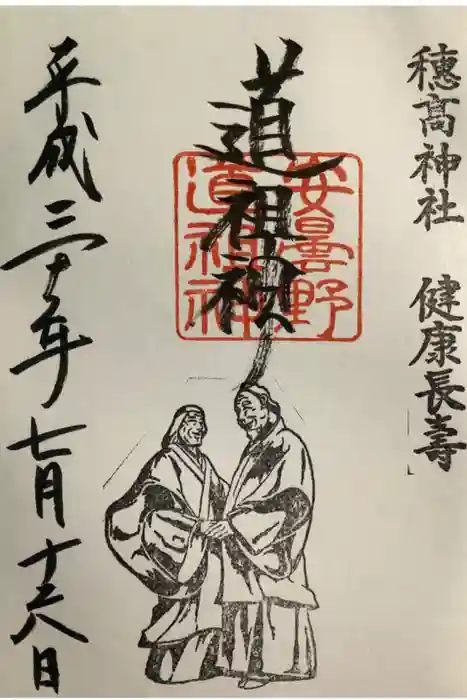 穂高神社 健康長壽
道祖神
安曇野
道祖神
平成三十年七月十六日